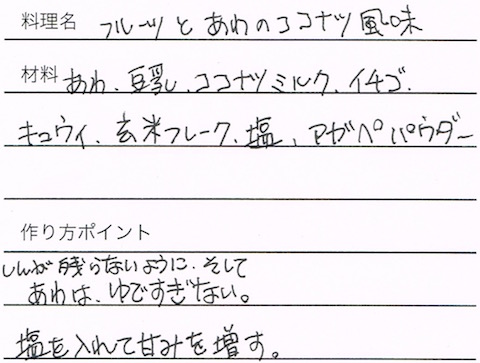 料理名 フルーツとあわのココナツ風味
材料 あわ、豆乳、ココナツミルク、イチゴ、
キュウイ、玄米フレーク、塩、アガペパウダー
作り方ポイント
しんが残らないように、そして
あわは、ゆですぎない。
塩を入れて甘みを増す。